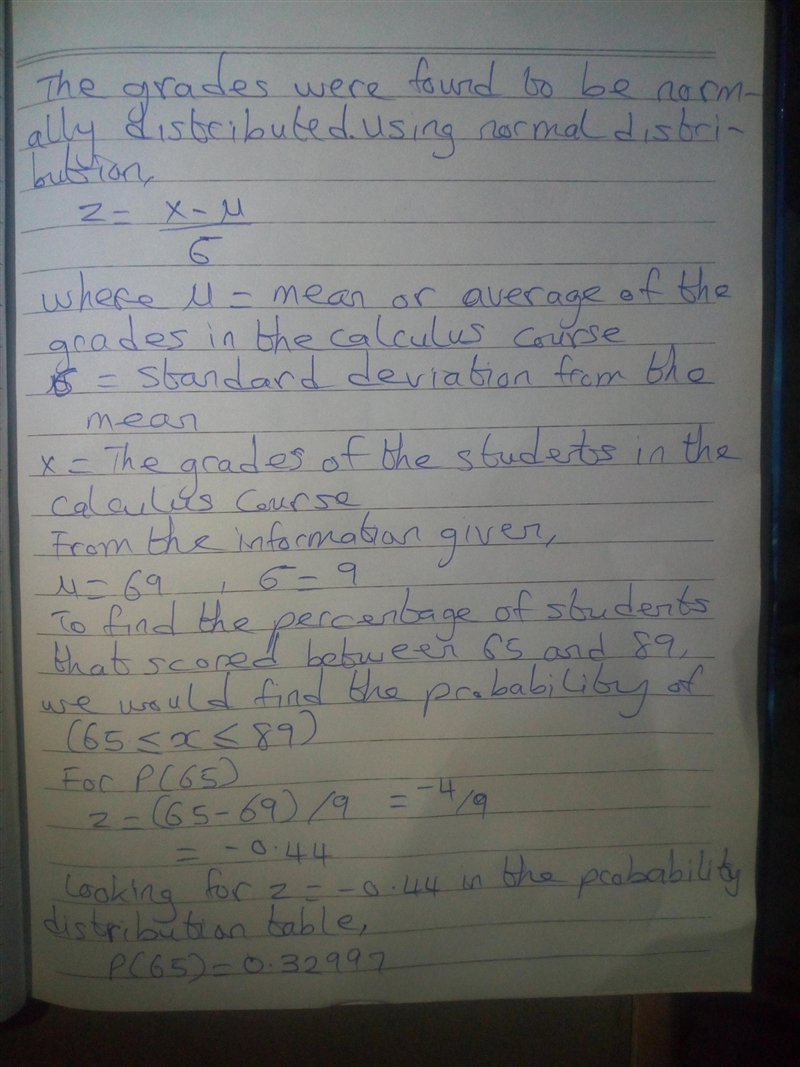 The grades were found to be norm-
ally distributed. Using normal distri-
bution,
z = x - μ
σ
where μ = mean or average of the
grades in the calculus course
σ = standard deviation from the
mean
x = The grades of the students in the
calculus course
From the information given,
μ = 69 , σ = 9
To find the percentage of students
that scored between 65 and 89,
we would find the probability of
(65 ≤ x ≤ 89)
For P(65)
z = (65 - 69) /9 = -4/9
= -0.44
Looking for z = -0.44 in the probability
distribution table,
P(65) = 0.32997